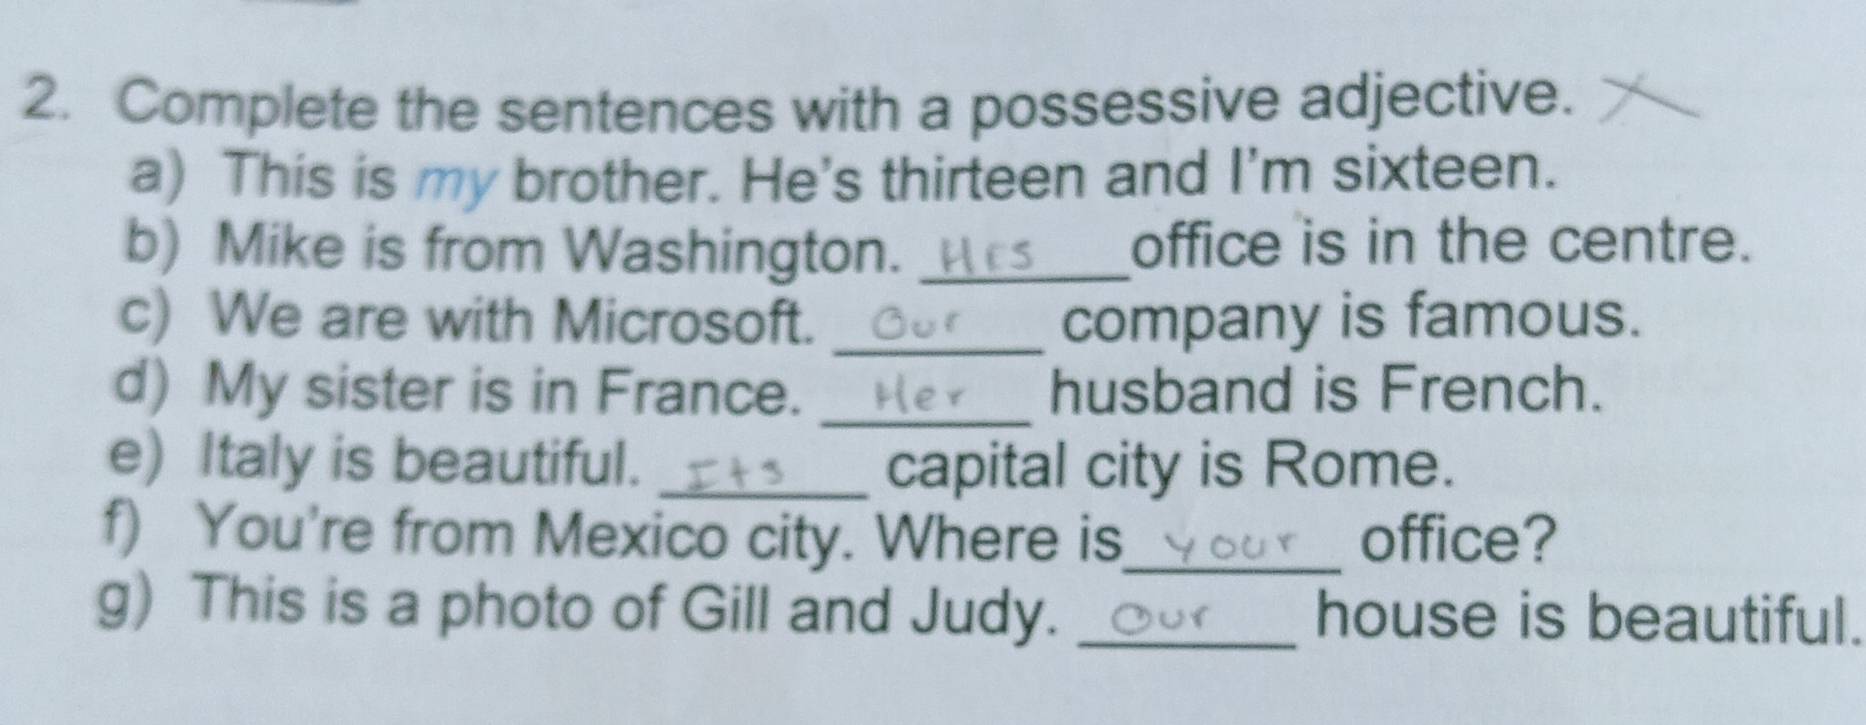 2. Complete the sentences with a possessive adjective.
a) This is my brother. He's thirteen and I'm sixteen.
b) Mike is from Washington. His office is in the centre.
c) We are with Microsoft. Our company is famous.
d) My sister is in France. Her husband is French.
e) Italy is beautiful. Its capital city is Rome.
f) You're from Mexico city. Where is your office?
g) This is a photo of Gill and Judy. Our house is beautiful.